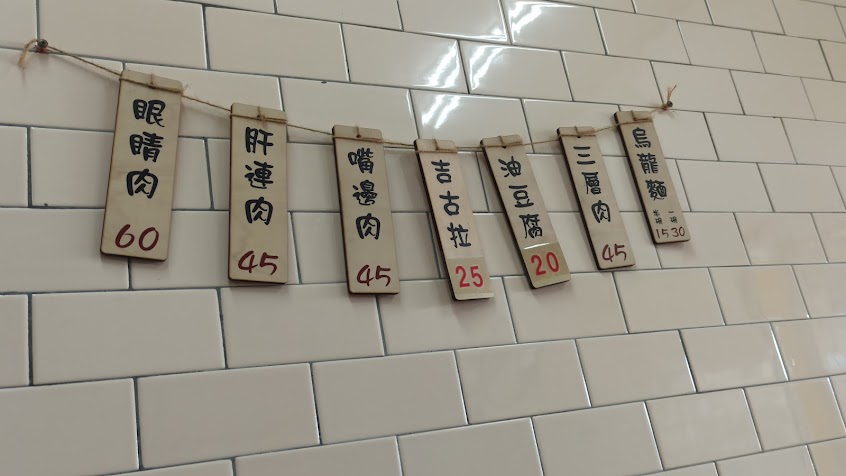 眼睛肉
60
肝連肉
45
嘴邊肉
45
吉古拉
25
油豆腐
20
三層肉
45
烏龍麵
半碗 一碗
15 30